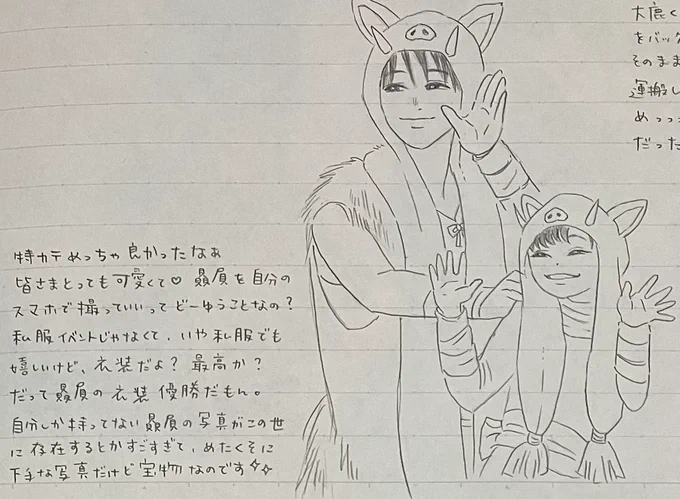 特カテめっちゃ良かったなぁ
皆さまとっても可愛くて♡ 贔屓を自分の
スマホで撮っていいってどーゆうことなの？
私服イベントじゃなくて、いや私服でも
嬉しいけど、衣装だよ？ 最高か？
だって贔屓の衣装優勝だもん。
自分しか持ってない贔屓の写真がこの世
に存在するとかすごすぎて、めたくそに
下手な写真だけど宝物なのです✧✧
大鹿く
をバック
そのまま
運搬し
めっっ
だった